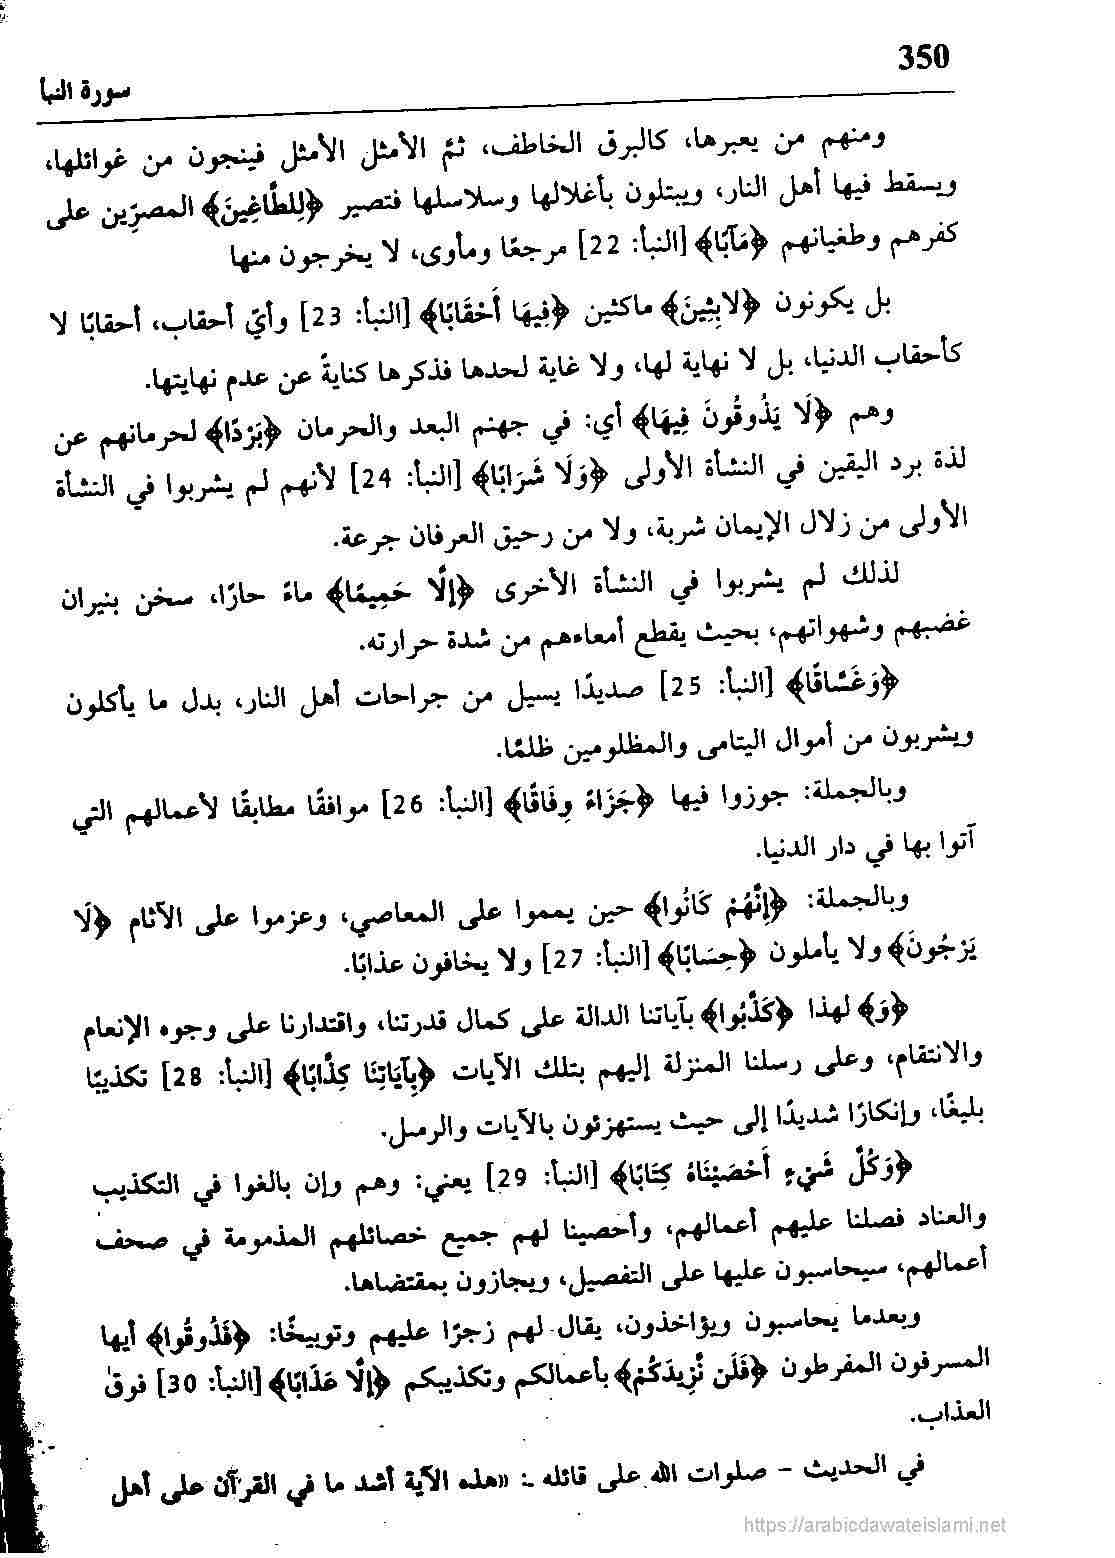 350
سورة النبأ
ومنهم من يعبرها، كالبرق الخاطف، ثمَّ الأمثل الأمثل فينجون من غوائلها،
ويسقط فيها أهل النار، ويبتلون بأغلالها وسلاسلها فتصير ﴿لِلطَّاغِينَ﴾ المصرِّين على
كفرهم وطغيانهم ﴿مَآبًا﴾ [النبأ: 22] مرجعًا ومأوى، لا يخرجون منها
بل يكونون ﴿لابِثِينَ﴾ ماكثين ﴿فِيهَا أَحْقَابًا﴾ [النبأ: 23] وأيّ أحقاب، أحقابًا لا
كأحقاب الدنيا، بل لا نهاية لها، ولا غاية لحدها فذكرها كنايةً عن عدم نهايتها.
وهم ﴿لَا يَذُوقُونَ فِيهَا﴾ أي: في جهنم البعد والحرمان ﴿بَرْدًا﴾ لحرمانهم عن
لذة برد اليقين في النشأة الأولى ﴿وَلَا شَرَابًا﴾ [النبأ: 24] لأنهم لم يشربوا في النشأة
الأولى من زلال الإيمان شربة، ولا من رحيق العرفان جرعة.
لذلك لم يشربوا في النشأة الأخرى ﴿إِلَّا حَمِيمًا﴾ ماءً حارًا، سخن بنيران
غضبهم وشهواتهم، بحيث يقطع أمعاءهم من شدة حرارته.
﴿وَغَسَّاقًا﴾ [النبأ: 25] صديدًا يسيل من جراحات أهل النار، بدل ما يأكلون
ويشربون من أموال اليتامى والمظلومين ظلمًا.
وبالجملة: جوزوا فيها ﴿جَزَاءً وِفَاقًا﴾ [النبأ: 26] موافقًا مطابقًا لأعمالهم التي
آتوا بها في دار الدنيا.
وبالجملة: ﴿إِنَّهُمْ كَانُوا﴾ حين يمموا على المعاصي، وعزموا على الآثام ﴿لَا
يَرْجُونَ﴾ ولا يأملون ﴿حِسَابًا﴾ [النبأ: 27] ولا يخافون عذابًا.
﴿وَ﴾ لهذا ﴿كَذَّبُوا﴾ بآياتنا الدالة على كمال قدرتنا، واقتدارنا على وجوه الإنعام
والانتقام، وعلى رسلنا المنزلة إليهم بتلك الآيات ﴿بِآيَاتِنَا كِذَّابًا﴾ [النبأ: 28] تكذيبًا
بليغًا، وإنكارًا شديدًا إلى حيث يستهزئون بالآيات والرسل.
﴿وَكُلَّ شَيْءٍ أَحْصَيْنَاهُ كِتَابًا﴾ [النبأ: 29] يعني: وهم وإن بالغوا في التكذيب
والعناد فصلنا عليهم أعمالهم، وأحصينا لهم جميع خصائلهم المذمومة في صحف
أعمالهم، سيحاسبون عليها على التفصيل، ويجازون بمقتضاها.
وبعدما يحاسبون ويؤاخذون، يقال لهم زجرًا عليهم وتوبيخًا: ﴿فَذُوقُوا﴾ أيها
المسرفون المفرطون ﴿فَلَن نَّزِيدَكُمْ﴾ بأعمالكم وتكذيبكم ﴿إِلَّا عَذَابًا﴾ [النبأ: 30] فوق
العذاب.
في الحديث - صلوات الله على قائله -: «هذه الآية أشد ما في القرآن على أهل
https://arabicdawateislami.net